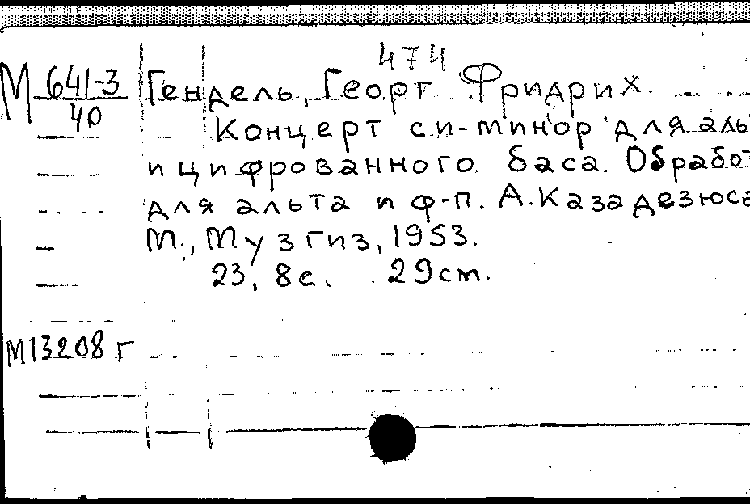 474
М 641-3 Гендель, Георг Фридрих.
40
Концерт си-минор для аль
и цифрованного баса. Обработ
для альта и ф-п. А. Казадезюса
М., Музгиз, 1953.
23, 8с. 29 cm.
М13208 г